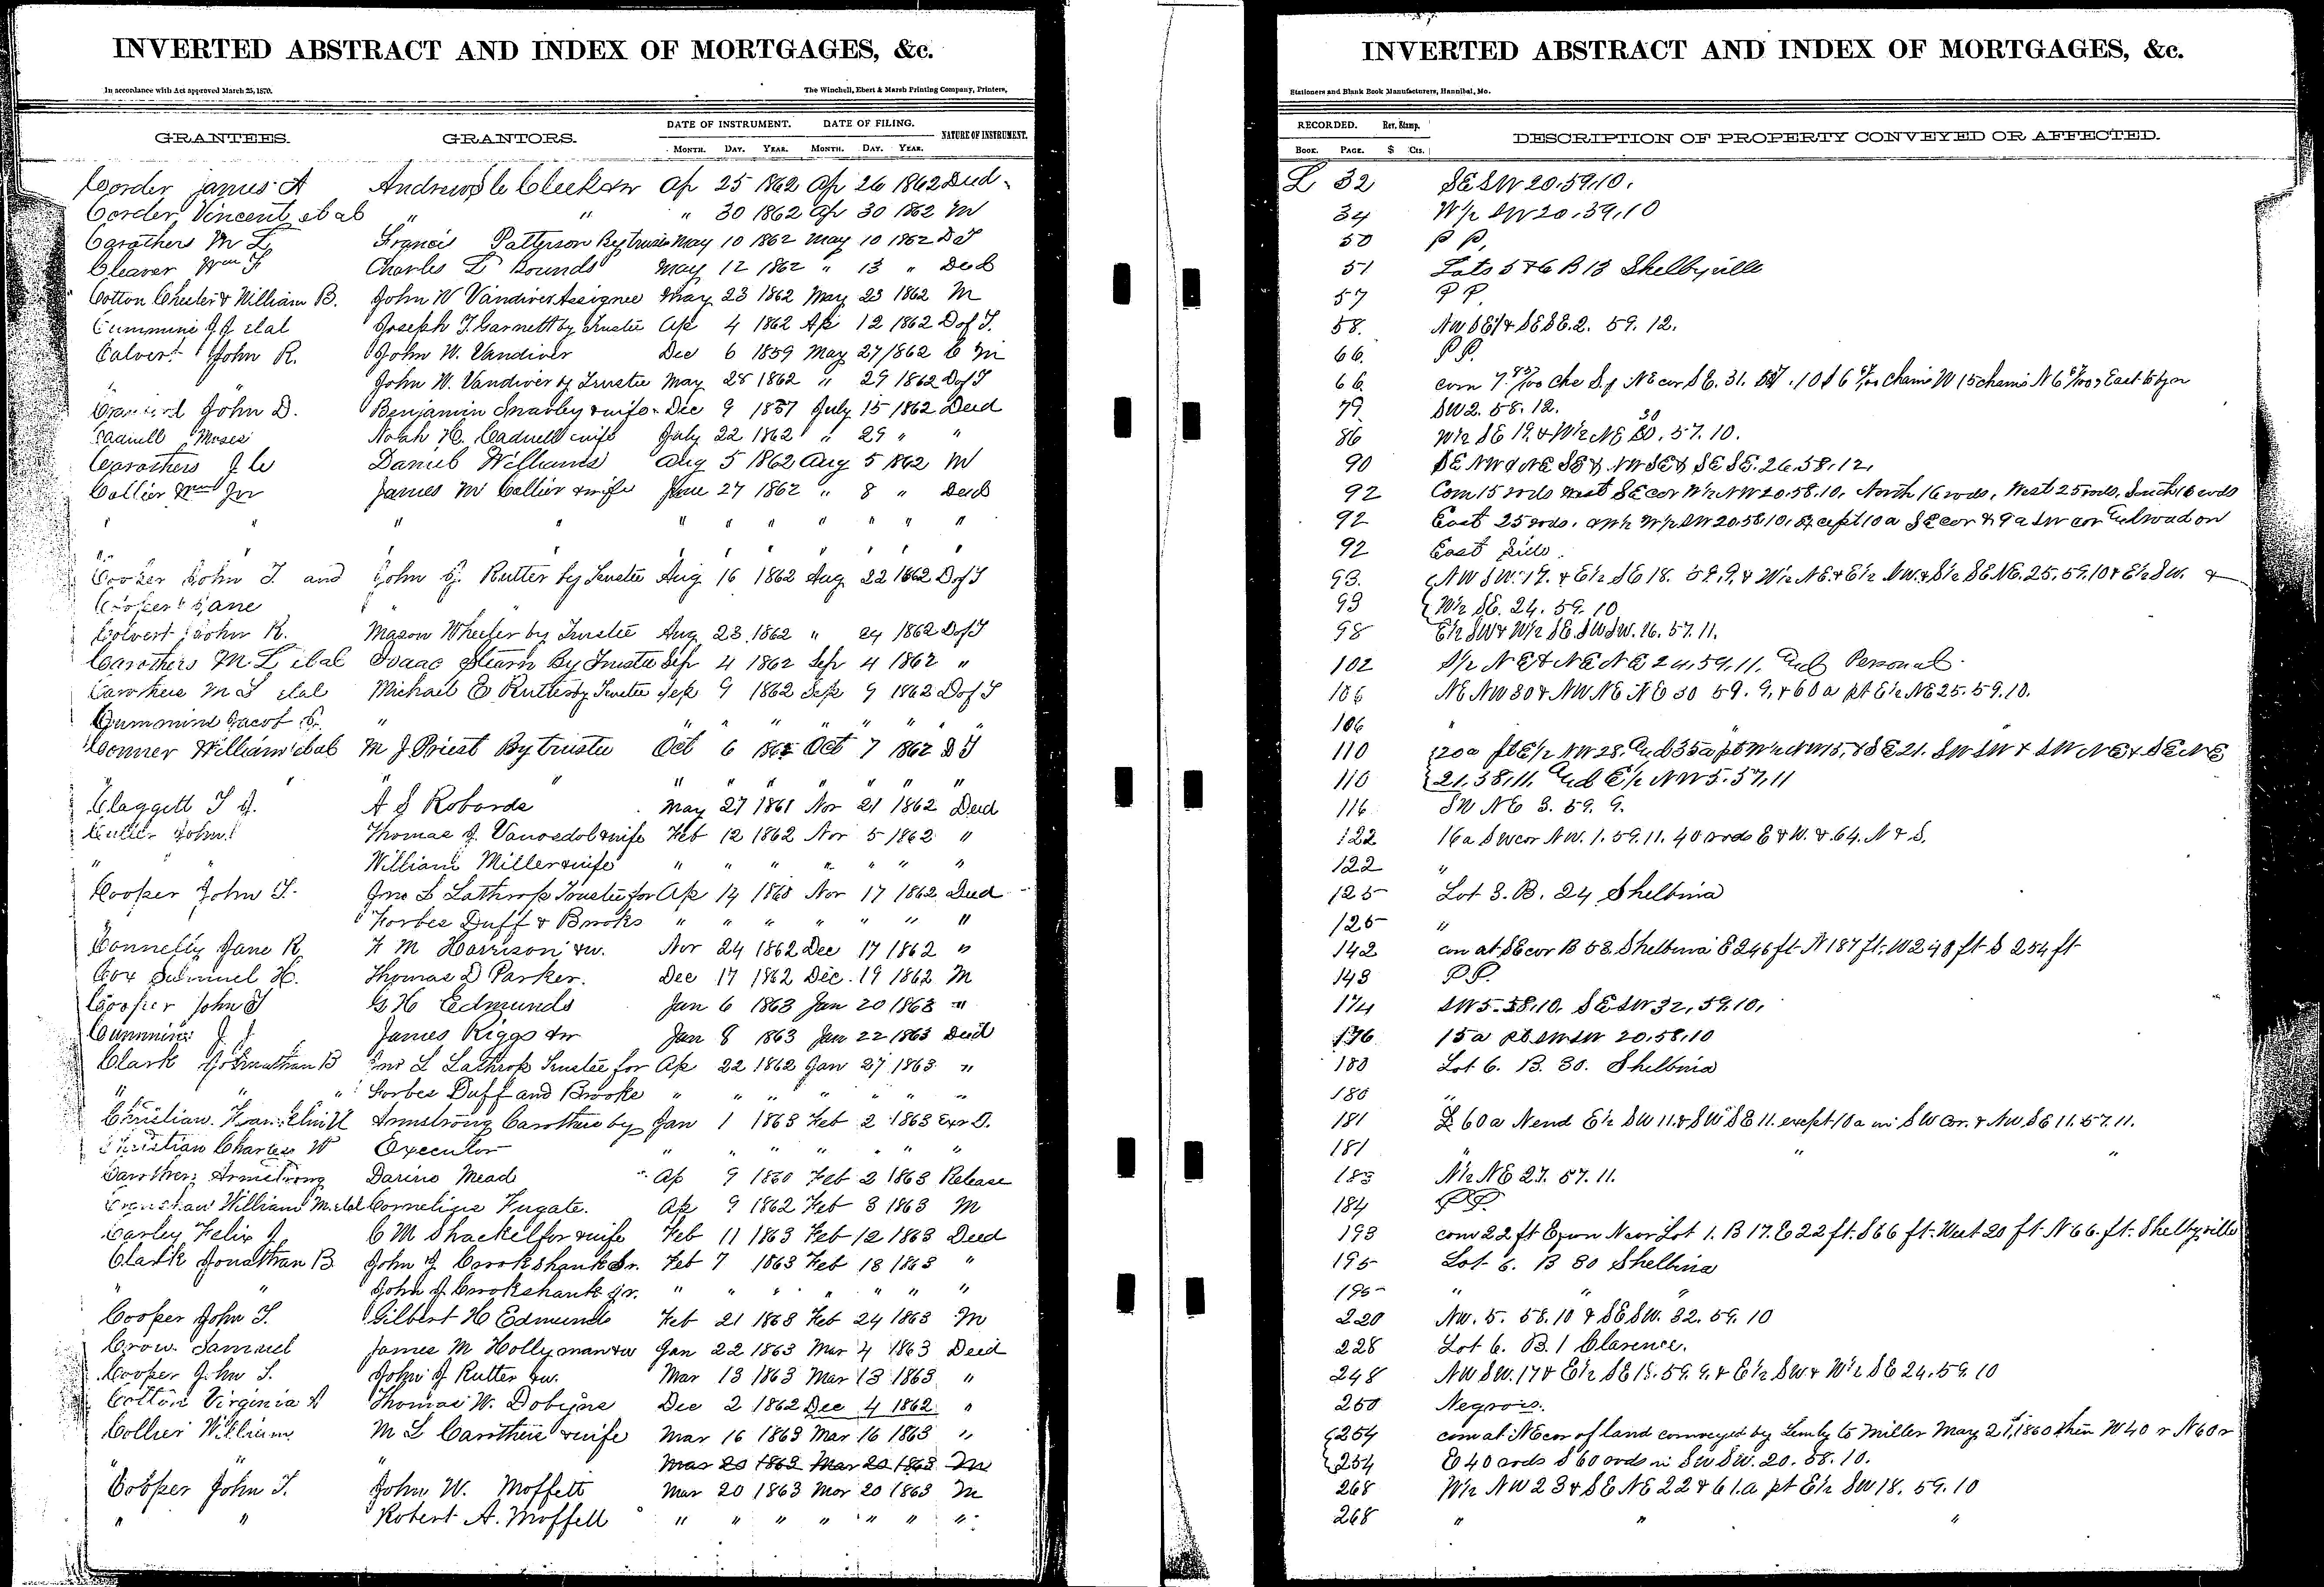 INVERTED ABSTRACT AND INDEX OF MORTGAGES, &c.
In accordance with Act approved March 25, 1870. The Winchell, Ebert & Marsh Printing Company, Printers,
GRANTEES. GRANTORS. DATE OF INSTRUMENT. DATE OF FILING. NATURE OF INSTRUMENT.
MONTH. DAY. YEAR. MONTH. DAY. YEAR.
Corder James A Andrew Ap 25 1862 Ap 26 1862 Deed
Corder Vincent et al " " " 30 1862 Ap 30 1862 M
Carothers M L Francis Patterson By trustee May 10 1862 May 10 1862 D T
Cleaver Wm F Charles L Bounds May 12 1862 " 13 " Deed
Cotton Chester & William B. John W Vandiver Assignee May 23 1862 May 23 1862 M
Cummins J J et al Joseph T. Garnett by Trustee Ap 4 1862 Ap 12 1862 D of T.
Calvert John R. John W. Vandiver Dec 6 1859 May 27 1862 C M
John W. Vandiver by Trustee May 28 1862 " 29 1862 D of T
John D. Benjamin & wife Dec 9 1857 July 15 1862 Deed
Cadwell Moses Noah H. Cadwell & wife July 22 1862 " 29 " "
Carothers J C Daniel Williams Aug 5 1862 Aug 5 1862 M
Collier Wm Jr James M Collier & wife June 27 1862 " 8 " Deed
" " " " " " " " " " "
" " " " " " " " "
Cooper John T. and John J. Rutter by Trustee Aug 16 1862 Aug 22 1862 D of T
Cooper Jane "
Colvert John R. Mason Wheeler by Trustee Aug 23 1862 " 24 1862 D of T
Carothers M. L et al Isaac Stearn By Trustee Sep 4 1862 Sep 4 1862 "
Carothers M L et al Michael E Rutter by Trustee Sep 9 1862 Sep 9 1862 D of T
Cummins Jacob J. " " " " " " " "
Conner William et al M J Priest By trustee Oct 6 1862 Oct 7 1862 D T
" " " " " " " " "
Claggett T J. A S Robards May 27 1861 Nov 21 1862 Deed
John Thomas J. & wife Feb 12 1862 Nov 5 1862 "
" " William Miller & wife " " " " " " "
Cooper John T. Jno L Lathrop Trustee for Ap 14 1860 Nov 17 1862 Deed
Forbes Duff & Brooks " " " " " " "
Connelly Jane R F M Harrison & w. Nov 24 1862 Dec 17 1862 "
Cox Samuel H. Thomas D Parker. Dec 17 1862 Dec. 19 1862 M
Cooper John T G H Edmunds Jan 6 1863 Jan 20 1863 "
Cummins J. J. James Riggs & w Jan 8 1863 Jan 22 1863 Deed
Clark Johnathan B Jno L Lathrop Trustee for Ap 22 1862 Jan 27 1863 "
" " " Forbes Duff and Brooke " " " " " "
Christian Armstrong Carothers by Jan 1 1863 Feb 2 1863 Exr D.
Christian Charles W Executor " " " " " "
Carothers Armstrong Darius Mead Ap 9 1860 Feb 2 1863 Release
Crenshaw William M. et al Cornelius Fugate. Ap 9 1862 Feb 3 1863 M
Carley Felix J C M Shackelfor & wife Feb 11 1863 Feb 12 1863 Deed
Clark Jonathan B. John J. Crookshank Sr. Feb 7 1863 Feb 18 1863 "
" " John J. Crookshank Jr. " " " " " " "
Cooper John T. Gilbert H Edmunds Feb 21 1863 Feb 24 1863 M
Crow. Samuel James M Hollyman & w Jan 22 1863 Mar 4 1863 Deed
Cooper John T. John J Rutter & w. Mar 13 1863 Mar 13 1863 "
Cotton Virginia A Thomas W. Dobyns Dec 2 1862 Dec 4 1862 "
Collier William M L Carothers & wife Mar 16 1863 Mar 16 1863 "
" " Mar 20 1863 Mar 20 1863 M
Cooper John T. John W. Moffett Mar 20 1863 Mar 20 1863 M
" " Robert A. Moffett " " " " " " "
INVERTED ABSTRACT AND INDEX OF MORTGAGES, &c.
Stationers and Blank Book Manufacturers, Hannibal, Mo.
RECORDED. Rev. Stamp. DESCRIPTION OF PROPERTY CONVEYED OR AFFECTED.
BOOK. PAGE. $ Cts.
L 32 SE SW 20.59.10.
34 W 1/2 SW 20.39.10
50 P P.
51 Lots 5 & 6 B 13 Shelbyville
57 P P.
58. NW SE & SE SE. 2. 59. 12.
66. P P.
66 com S. of NE cor SE. 31.
79 SW 2. 58. 12.
86 W 1/2 SE 19. & W 1/2 NE 30. 57. 10.
90 SE NW & NE SE & NW SE & SE SE. 26. 58. 12.
92 Com 15 rods west SE cor W 1/2 NW 20. 58. 10. North 16 rods, West 25 rods, South 16 rods
92 East 25 rods. W 1/2 SW 20.58.10, except 10 a SE cor & 9 a SW cor on
92 East Side.
93. NW SW. 17. & E 1/2 SE 18. 59. 9. & W 1/2 NE. & E 1/2 NW. & S 1/2 SE NE. 25. 59. 10 & E 1/2 SW. &
93 W 1/2 SE. 24. 59. 10
98 E 1/2 SW & W 1/2 SE. SW SW. 16. 57. 11.
102 S 1/2 NE & NE NE 24, 59. 11. And Personal.
106 NE NW 30 & NW NE NE 30 59. 9. & 60 a pt E 1/2 NE 25. 59. 10.
106 "
110 20 a pt E 1/2 NW 28. And 35 a pt W 1/2 NW 15, & SE 21. SW SW & SW NE & SE NE
110 21. 58. 11. And E 1/2 NW 5. 57. 11
116 SW NE 3. 59. 9.
122 16 a SW cor NW. 1. 59. 11. 40 rods E & W. & 64. N & S.
122 "
125 Lot 3. B. 24 Shelbina
125 "
142 com at SE cor B 53 Shelbina E 246 ft N 187 ft. W 248 ft S 254 ft
143 P P.
174 SW 5. 58. 10. SE SW 32, 59. 10.
176 15 a pt SW SW 20. 58. 10
180 Lot 6. B. 30. Shelbina
180 "
181 60 a N end E 1/2 SW 11. & SW SE 11. except 10 a in SW Cor. & NW SE 11. 57. 11.
181 " "
183 N 1/2 NE 27. 57. 11.
184 P P.
193 com 22 ft E from N cor Lot 1. B 17. E 22 ft. S 66 ft. West 20 ft N 66. ft. Shelbyville
195 Lot 6. B 30 Shelbina
195 " " "
220 NW. 5. 58. 10 & SE SW. 32. 59. 10
228 Lot 6. B. 1 Clarence.
248 NW SW. 17 & E 1/2 SE 18. 59. 9. & E 1/2 SW & W 1/2 SE 24. 59. 10
250 Negroes.
254 com at NE cor of land conveyed by to Miller May 21, 1860 then W 40 r N 60 r
254 E 40 rods S 60 rods in SW SW. 20. 58. 10.
268 W 1/2 NW 23 & SE NE 22 & 61. a pt E 1/2 SW 18. 59. 10
268 " " "